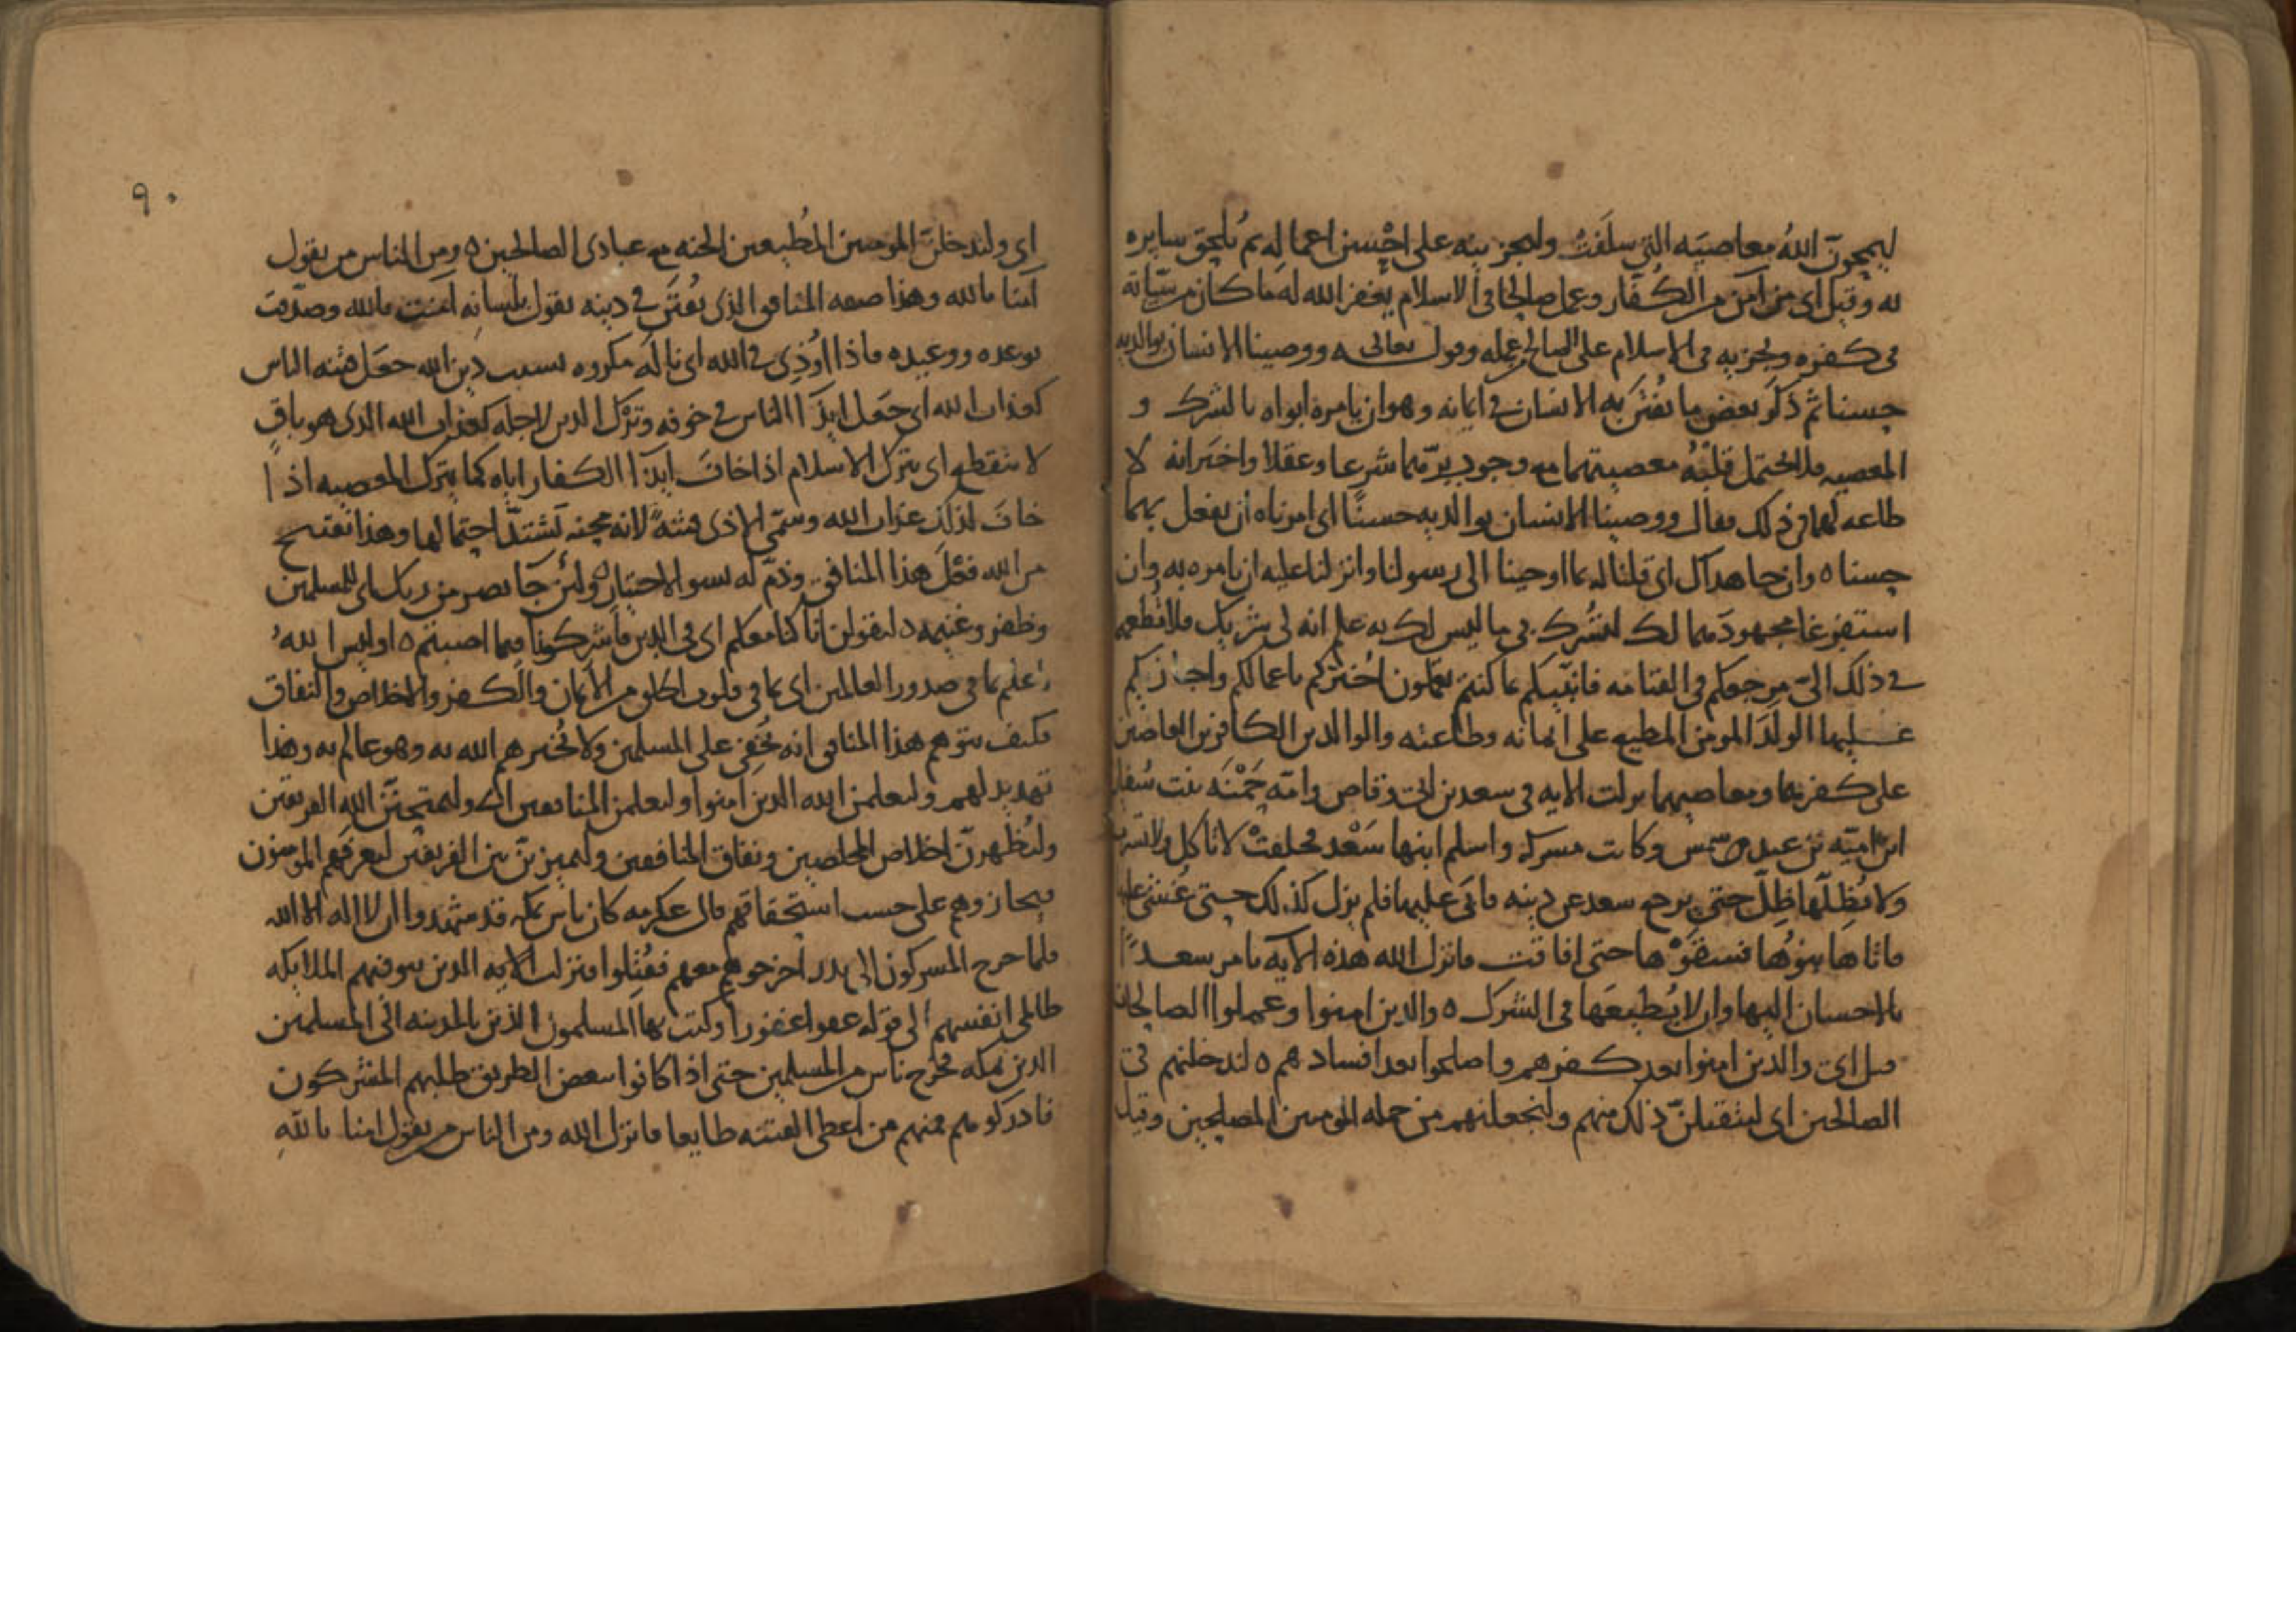 ليمحونّ الله معاصيَه التي سلَفَتْ وليجزينه على احْسن اعماله ثم يُلحق سايره
به وقيل اي من آمن من الكُفّار وعمل صالحا في الاسلام يغفر الله له ما كان من سيّاته
في كفره ويجزيه في الاسلام على الصالح من عمله وقول تعالى ووصينا الانسان بوالديه
حسنا ثم ذكر بعض ما يُفتَن به الانسان في ايمانه وهو ان يامره ابواه بالشرك و
المعصيه فلا يحتمل قلبُهُ معصيتهما مع وجوب برّهما شرعا وعقلا واخبر انه لا
طاعه لهما في ذلك فقال ووصينا الانسان بوالديه حسنًا اي امرناه ان يفعل بهما
حسنا ه وان جاهداك اي قلنا له بما اوحينا الى رسولنا وانزلنا عليه ان يامره به وان
استفرغا مجهودَهما لك لتُشرك بي ما ليس لك به علم انه لي شريك فلا تُطعهما
في ذلك اليّ مرجعكم في القيامه فانبّيكم بما كنتم تعملون اُخبركم باعمالكم واجازيكم
عليها الولَدَ المومن المطيع على ايمانه وطاعته والوالدين الكافرين العاصين
على كفرهما ومعاصيهما نزلت الايه في سعد بن ابي وقاص وامّه حَمْنَه بنت سُفيان
ابن اميّه بن عبد شمس وكانت مشركه واسلم ابنها سَعْد فحلفتْ لا تاكل ولا تشرب
ولا يُظلّها ظِلّ حتى يرجع سعد عن دينه فابَى عليها فلم يزل كذلك حتى غُشي عليها
فاتاها بنوُها فسقَوْها حتى افاقت فانزل الله هذه الآيه يامر سعدًا
بالاحسان اليها وان لا يُطيعَها في الشرك ه والذين امنوا وعملوا الصالحات
قيل اي والذين امنوا بعد كفرهم واصلحوا بعد افسادهم ه لندخلنهم في
الصالحين اي لنتقبلنّ ذلك منهم ولنجعلنهم من جمله المومنين المصلحين وقيل
٩٠
اي ولندخلنّ المومنين المُطيعين الجنه مع عبادي الصالحين ه ومن الناس من يقول
آمنا بالله وهذا صفه المنافق الذي يُفتَن في دينه يقول بلسانه آمنت بالله وصدّقت
بوعده ووعيده فاذا اُوذي في الله اي ناله مكروه بسبب دين الله جعَل فتنه الناس
كعذاب الله اي جعَل ايذآ الناس في خوفه وتَرْك الدين لاجله كعذاب الله الذي هو باقٍ
لا ينقطع اي يترك الاسلام اذا خافَ ايذآ الكفار اياه كما يترك المعصيه اذا
خافَ لذلك عذاب الله وسمّى الاذى فتنةً لانه محنه تشتدّ احتمالها وهذا تقبيح
من الله فعْلَ هذا المنافق وذمّ له بسو الاختيار ولئن جآ نصر من ربك اي للمسلمين
وظفر وغنيمه ليقولن انا كنا معكم اي في الدين فاشركونا فيما اصبتم ه اوليس اللهُ
باعلم بما في صدور العالمين اي بما في قلوب الخلق من الايمان والكفر والاخلاص والنفاق
فكيف يتوهم هذا المنافق انه يُخفي على المسلمين ولا يُخبرهم الله به وهو عالم به وهذا
تهديد لهم وليعلمن الله الذين امنوا وليعلمن المنافقين اي وليمتحننّ الله الفريقين
وليُظهرنّ اخلاص المخلصين ونفاق المنافقين وليميزنّ بين الفريقين ليعرفهم المومنون
فيجازوهم على حسب استحقاقهم قال عكرمه كان ناس بمكه قد شهدوا ان لا اله الا الله
فلما خرج المشركون الى بدر اخرجوهم معهم فقُتلوا فنزلت الايه الذين تتوفيهم الملايكه
ظالمي انفسهم الى قوله عفوا غفورا وكتب بها المسلمون الذين بالمدينه الى المسلمين
الذين بمكه فخرج ناس من المسلمين حتى اذا كانوا ببعض الطريق طلبهم المشركون
فادركوهم فمنهم من اعطى الفتنه طايعا فانزل الله ومن الناس من يقول امنا باللهِ